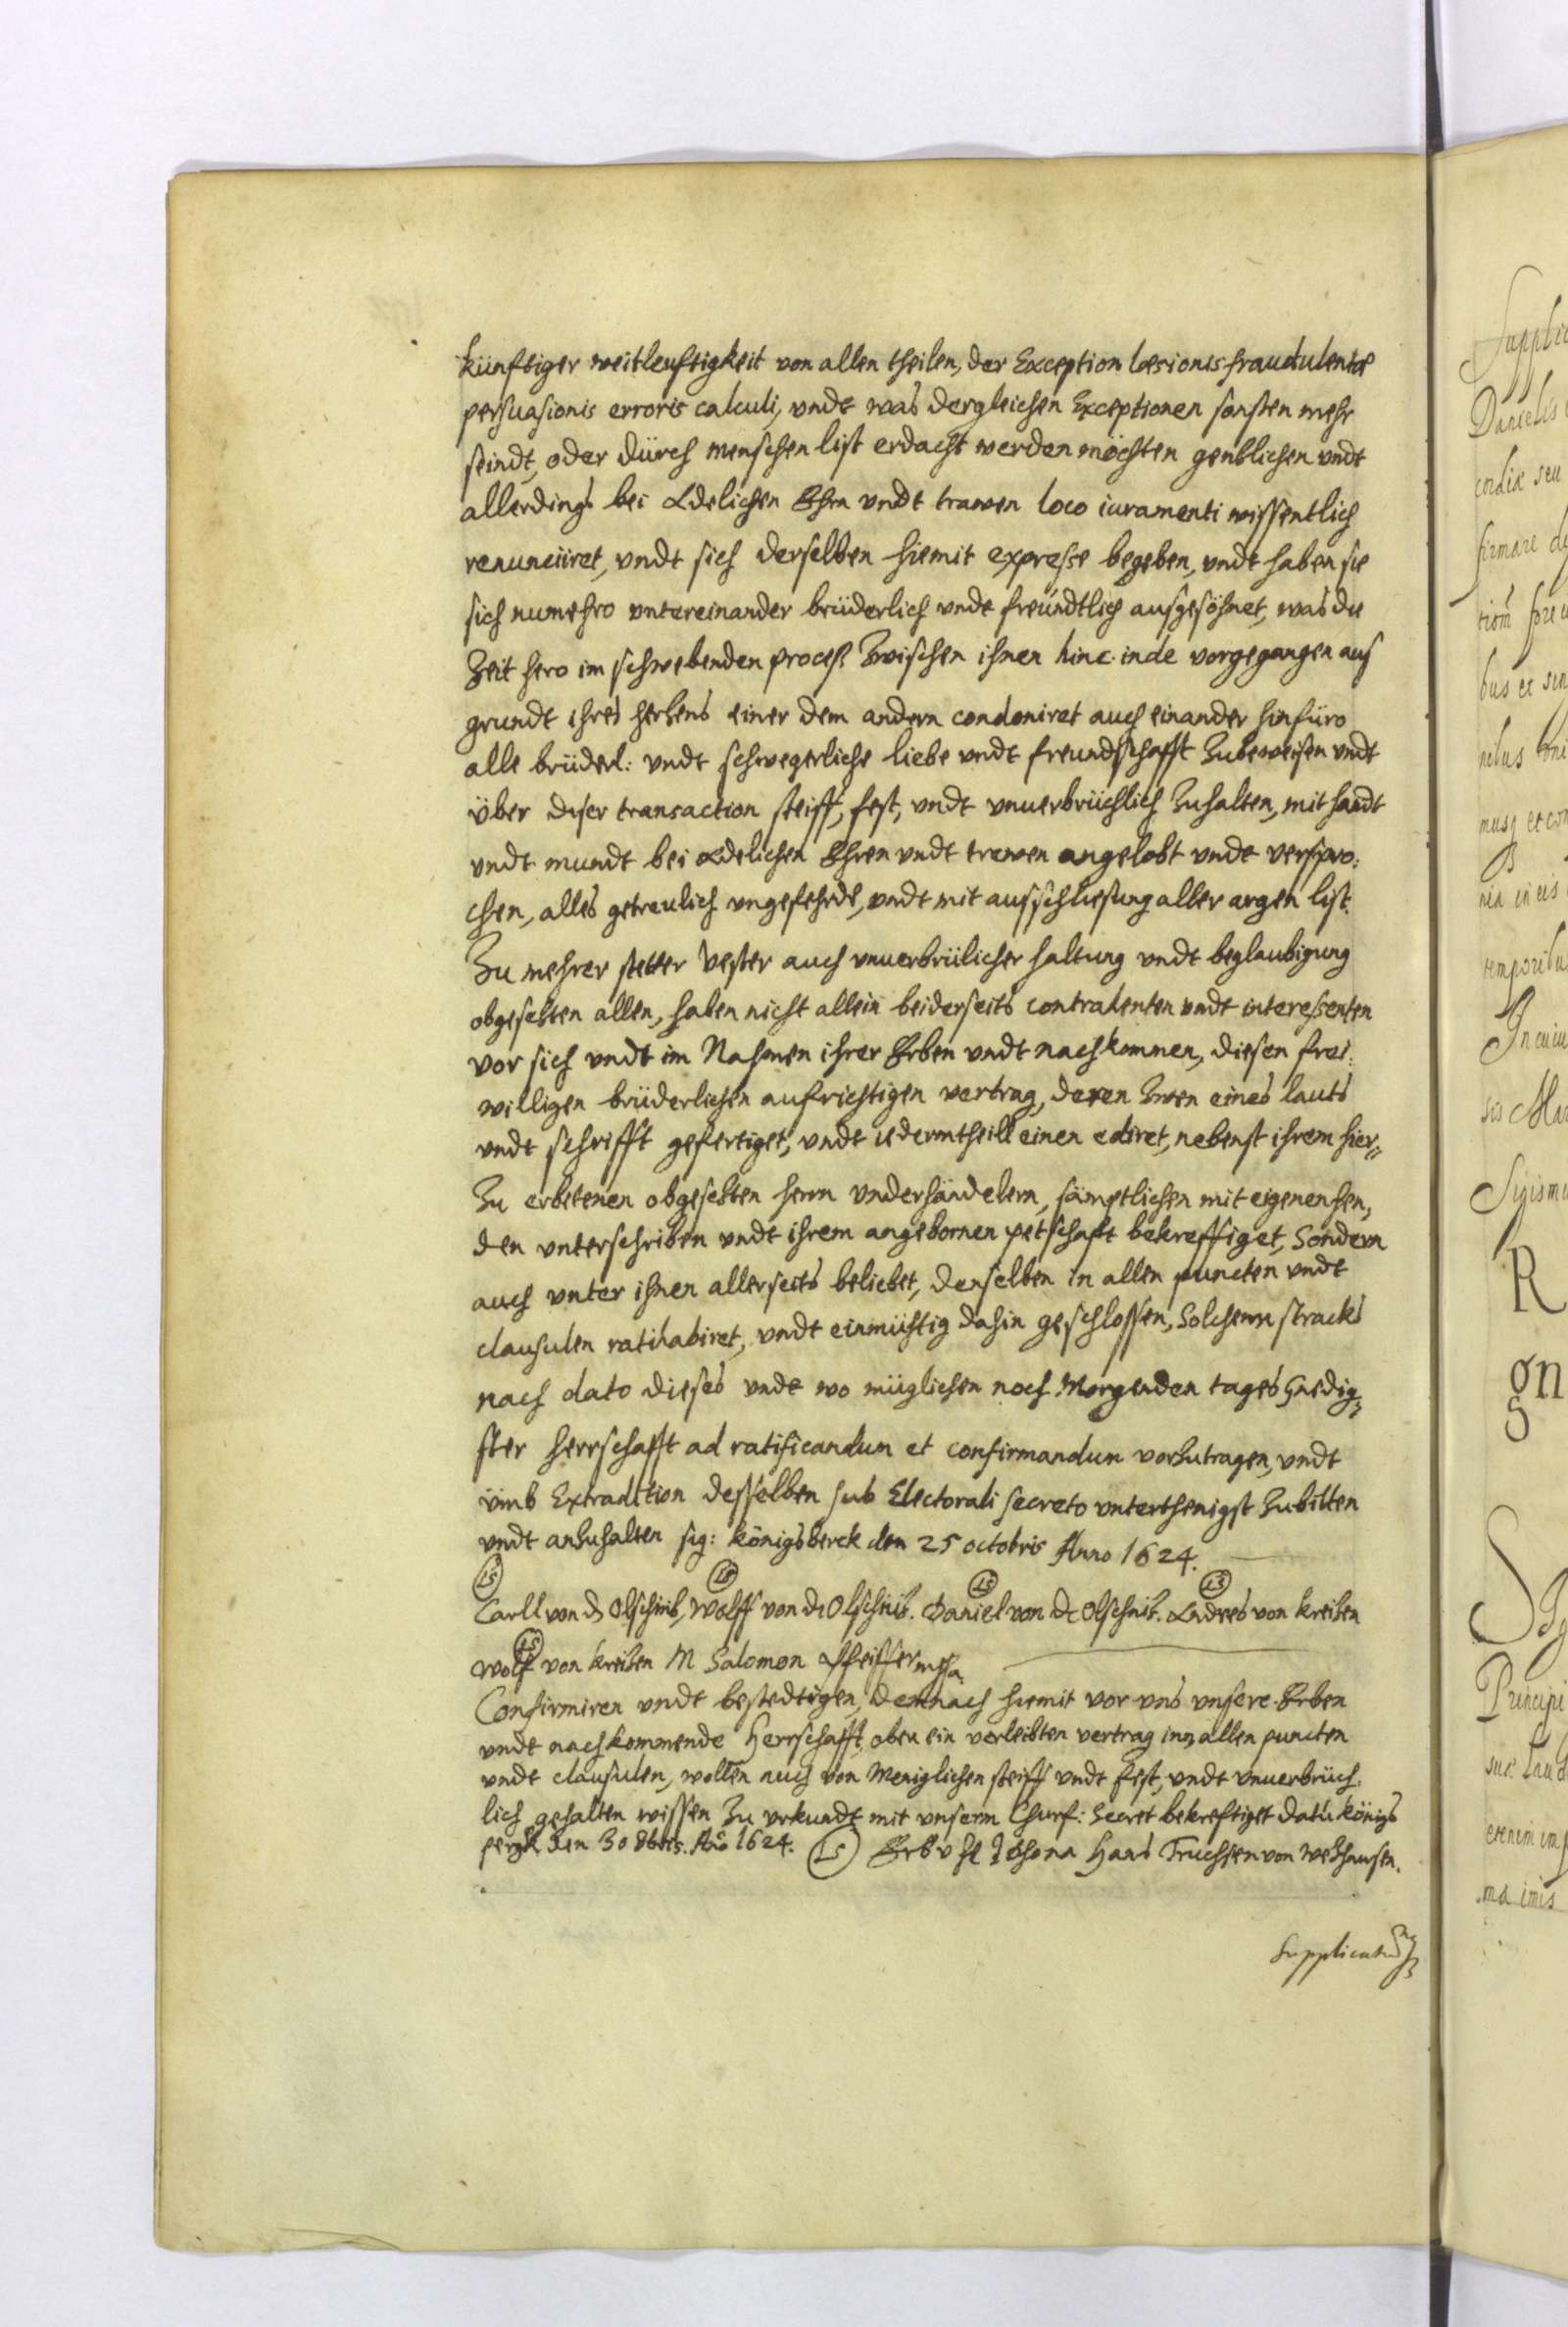 künftiger weitleuftigkeit von allen theilen, der Exception læsionis fraudulentæ
persuasionis erroris calculi, undt was dergleichen Exceptionen sonsten mehr
seindt, oder durch menschen list erdacht werden möchten gentzlichen undt
allerdings bei Adelichen Ehrn undt trawen loco iuramenti wissentlich
renunciiret, undt sich derselben hiemit expresse begeben, undt haben sie
sich numehro untereinander brüderlich undt freundtlich ausgesöhnet, was die
Zeit hero im schwebenden proces Zwischen ihnen hinc inde vorgegangen aus
grundt ihres hertzens einer dem andern condoniret auch einander hinfüro
alle brüderl: undt schwegerliche liebe undt freundschafft Zubeweisen undt
über diser transaction steiff, fest, undt unuerbrüchlich Zuhalten, mit handt
undt mundt bei Adelichen Ehren undt trewen angelobt undt verspro:
chen, alles getreulich ungefehrde, undt mit ausschliesung aller argen list.
Zu mehrer stetter vester auch unuerbrülicher haltung undt beglaubigung
obgesetzten allen, haben nicht allein beiderseits contrahenten undt interessenten
vor sich undt im Nahmen ihrer Erben undt nachkommen, diesen frei:
willigen brüderlichen aufrichtigen vertrag, deren Zwen eines lauts
undt schrifft gefertiget, undt iedermtheill einer ediret, nebenst ihrem hier=
Zu erbetenen obgesetzten herrn underhändelern, sämptlichen mit eigenen hen,
den unterschriben undt ihrem angebornen petschaft bekrefftiget, Sondern
auch unter ihnen allerseits beliebet, denselben in allen puncten undt
clausulen ratihabiret, undt einmühtig dahin geschlossen, Solchenn stracks
nach dato dieses undt wo müglichen noch Morgenden tages Gnedig=
ster herrschafft ad ratificandum et confirmandum vorzutragen, undt
umb Extradition desselben sub Electorali secreto unterthenigst Zubitten
undt anzuhalten sig: königsberck den 25 octobris Anno 1624.
LS LS LS LS
Carll von d Olschnitz, Wolff von d Olschnitz. Daniel von d Olschnitz. Andres von kreitzen
LS
Wolf von kreitzen M Salomon Pfeiffer
Confirmiren undt bestedtigen, demnach hiemit vor uns unsere Erben
undt nachkommende Herrschafft, oben ein verleibten vertrag inn allen puncten
undt clausulen, wollen auch von Meniglichen steiff undt fest, undt unuerbrüch:
lich gehalten wissen Zu urkundt mit unserm Churf: Secret bekreftiget Datū königs
pergk den 30 8bris. Aō 1624. LS Hans Truchses von Wetzhausen.